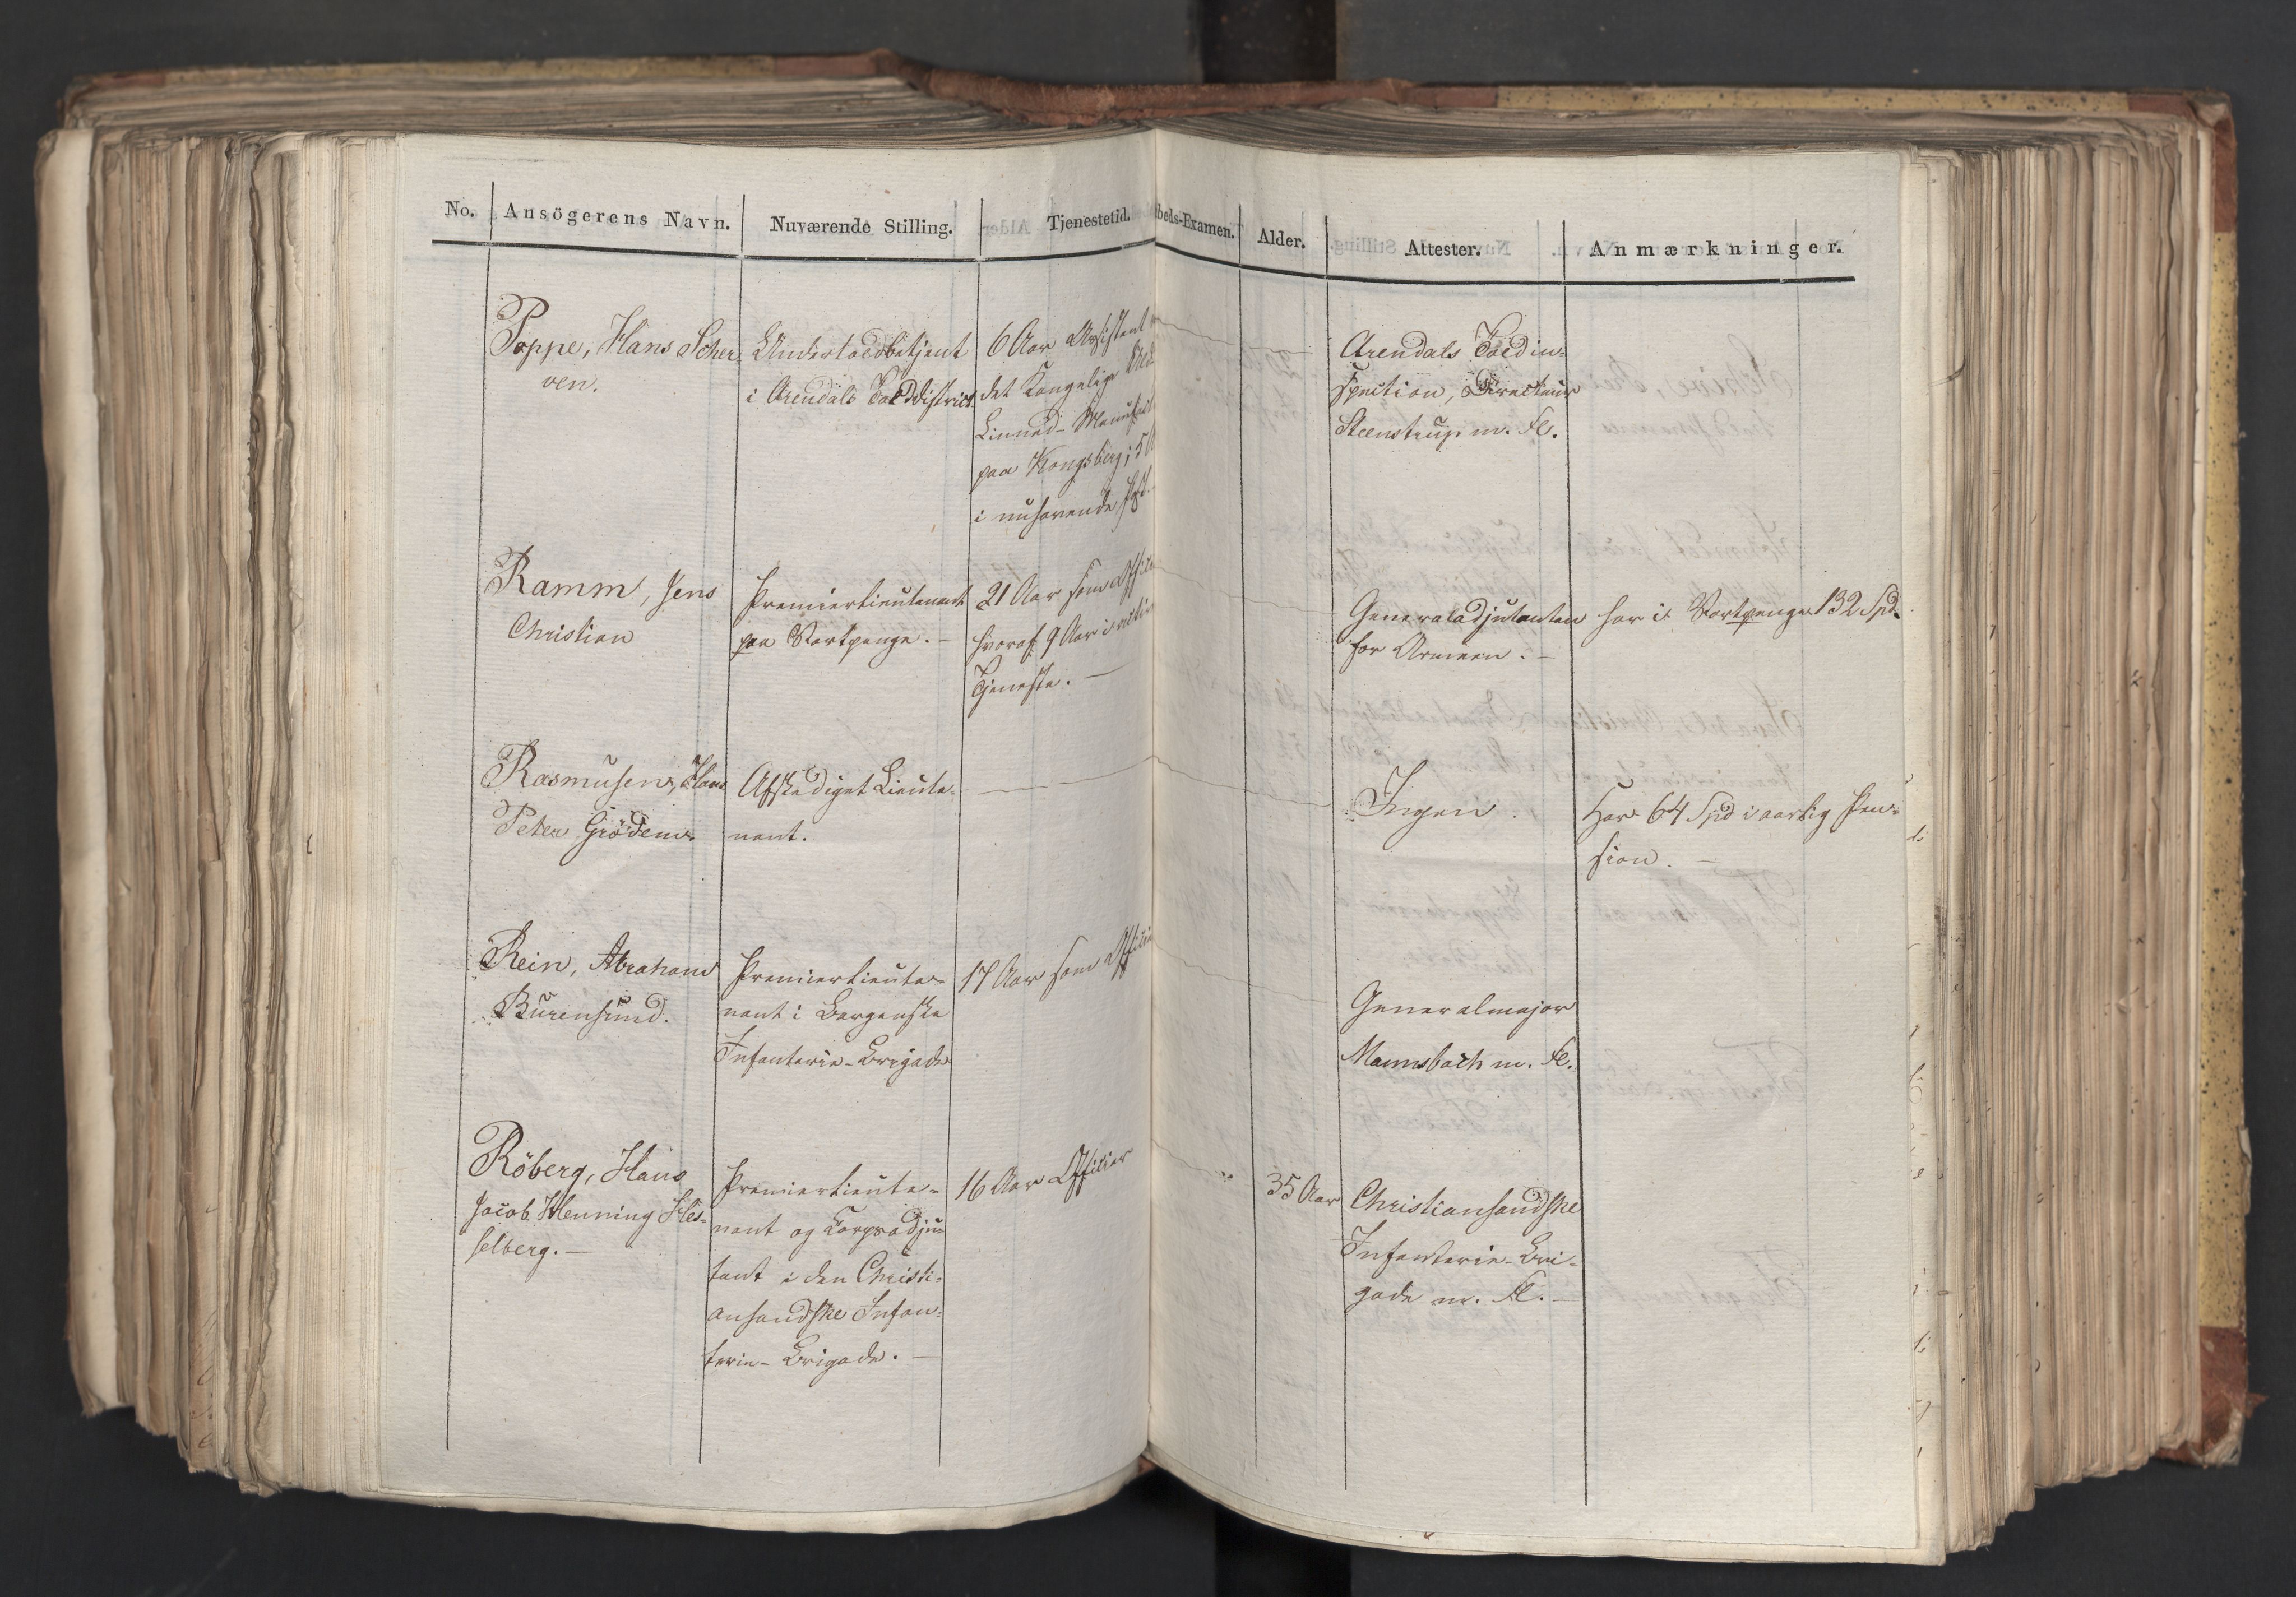 No. Ansögerens Navn. Nuværende Stilling. Tjenestetid. beds-Examen. Alder. Attester. Anmærkninger.
Poppe, Hans Scher
ven.
Undertoldbetjent
i Arendals Tolddistrict
6 Aar Assistent
det Kongelige
Linned-Manufact
paa Kongsberg; 5
i nuhavende Post.
Arendals Toldin-
spection, Directeur
Steenstrup m. Fl.
Ramm, Jens
Christian
Premierlieutenant
paa Vartpenge. —
21 Aar som Offici
hvoraf 9 Aar i activ
Tjeneste. —
Generaladjutanten
for Armeen. —
har i Vartpenge 132 Spd.
Rasmusen, Hans
Peter Grödem.
Afskediget Lieute-
nant.
Ingen.
Har 64 Spd i aarlig Pen-
sion. —
Rein, Abraham
Burensund.
Premierlieute-
nant i Bergenske
Infanterie-Brigade
17 Aar som Officier
Generalmajor
Mannsbach m. Fl.
Röberg, Hans
Jacob Henning Hes-
selberg. —
Premierlieute-
nant og Corpsadju-
tant i den Christi-
ansandske Infan-
terie-Brigade. —
16 Aar Officier
35 Aar
Christiansandske
Infanterie-Bri-
gade m. Fl. —